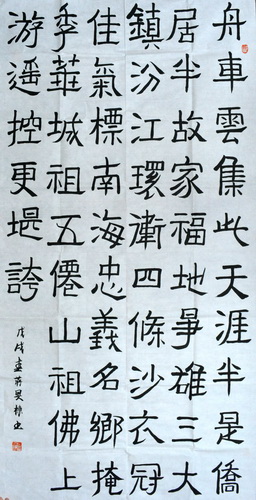 舟車雲集此天涯半是僑
居半故家福地爭雄三大
鎮汾江環衛四條沙衣冠
佳氣標南海忠義名鄉掩
季華城祖五僊山祖佛上
游遥控更堪誇
戊戌